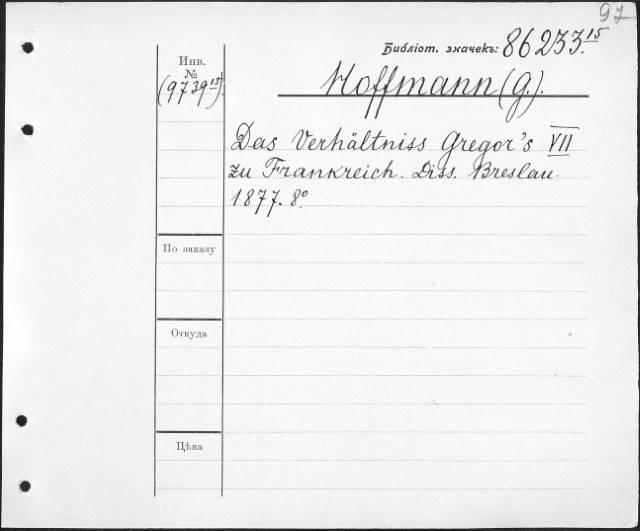 97
Библіот. значекъ: 86233.15
Инв.
№
(9739 15).
Hoffmann (G.).
Das Verhältniss Gregor's VII
zu Frankreich. Diss. Breslau.
1877. 8°
По заказу
Откуда
Цѣна